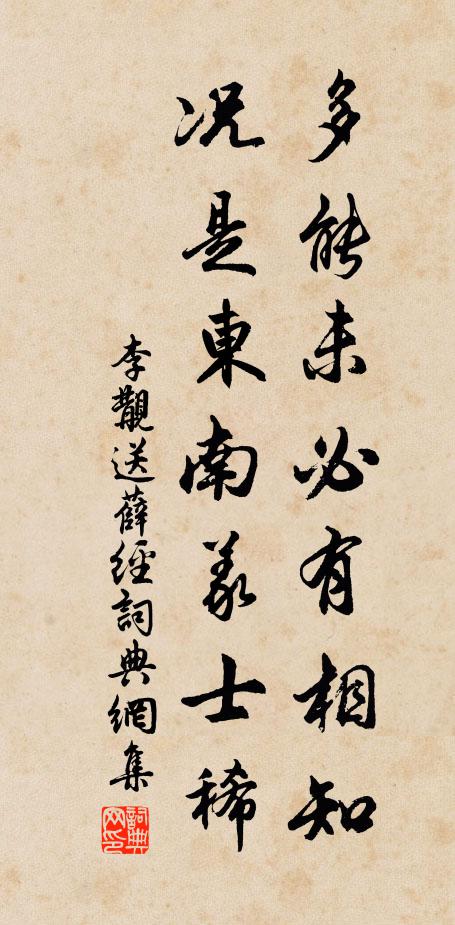 多能未必有相知
况是東南義士稀
李覯送薛經詞典網集
詞典网印